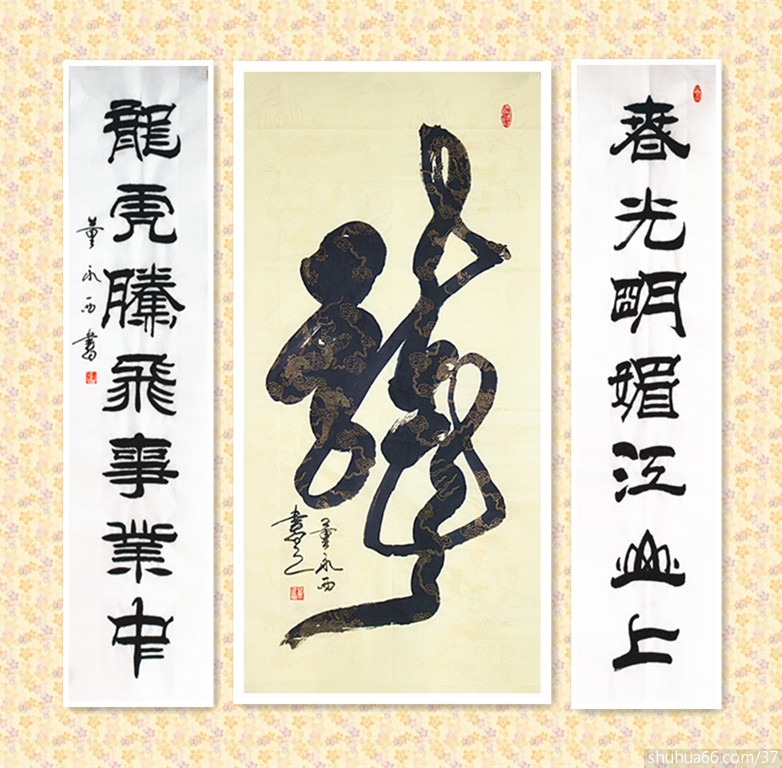 春光明媚江山上
龍
董永西
書之
龍虎騰飛事業中
董永西書
shuhua66.com/37